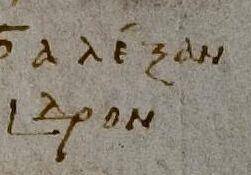 αλέξαν
δρον